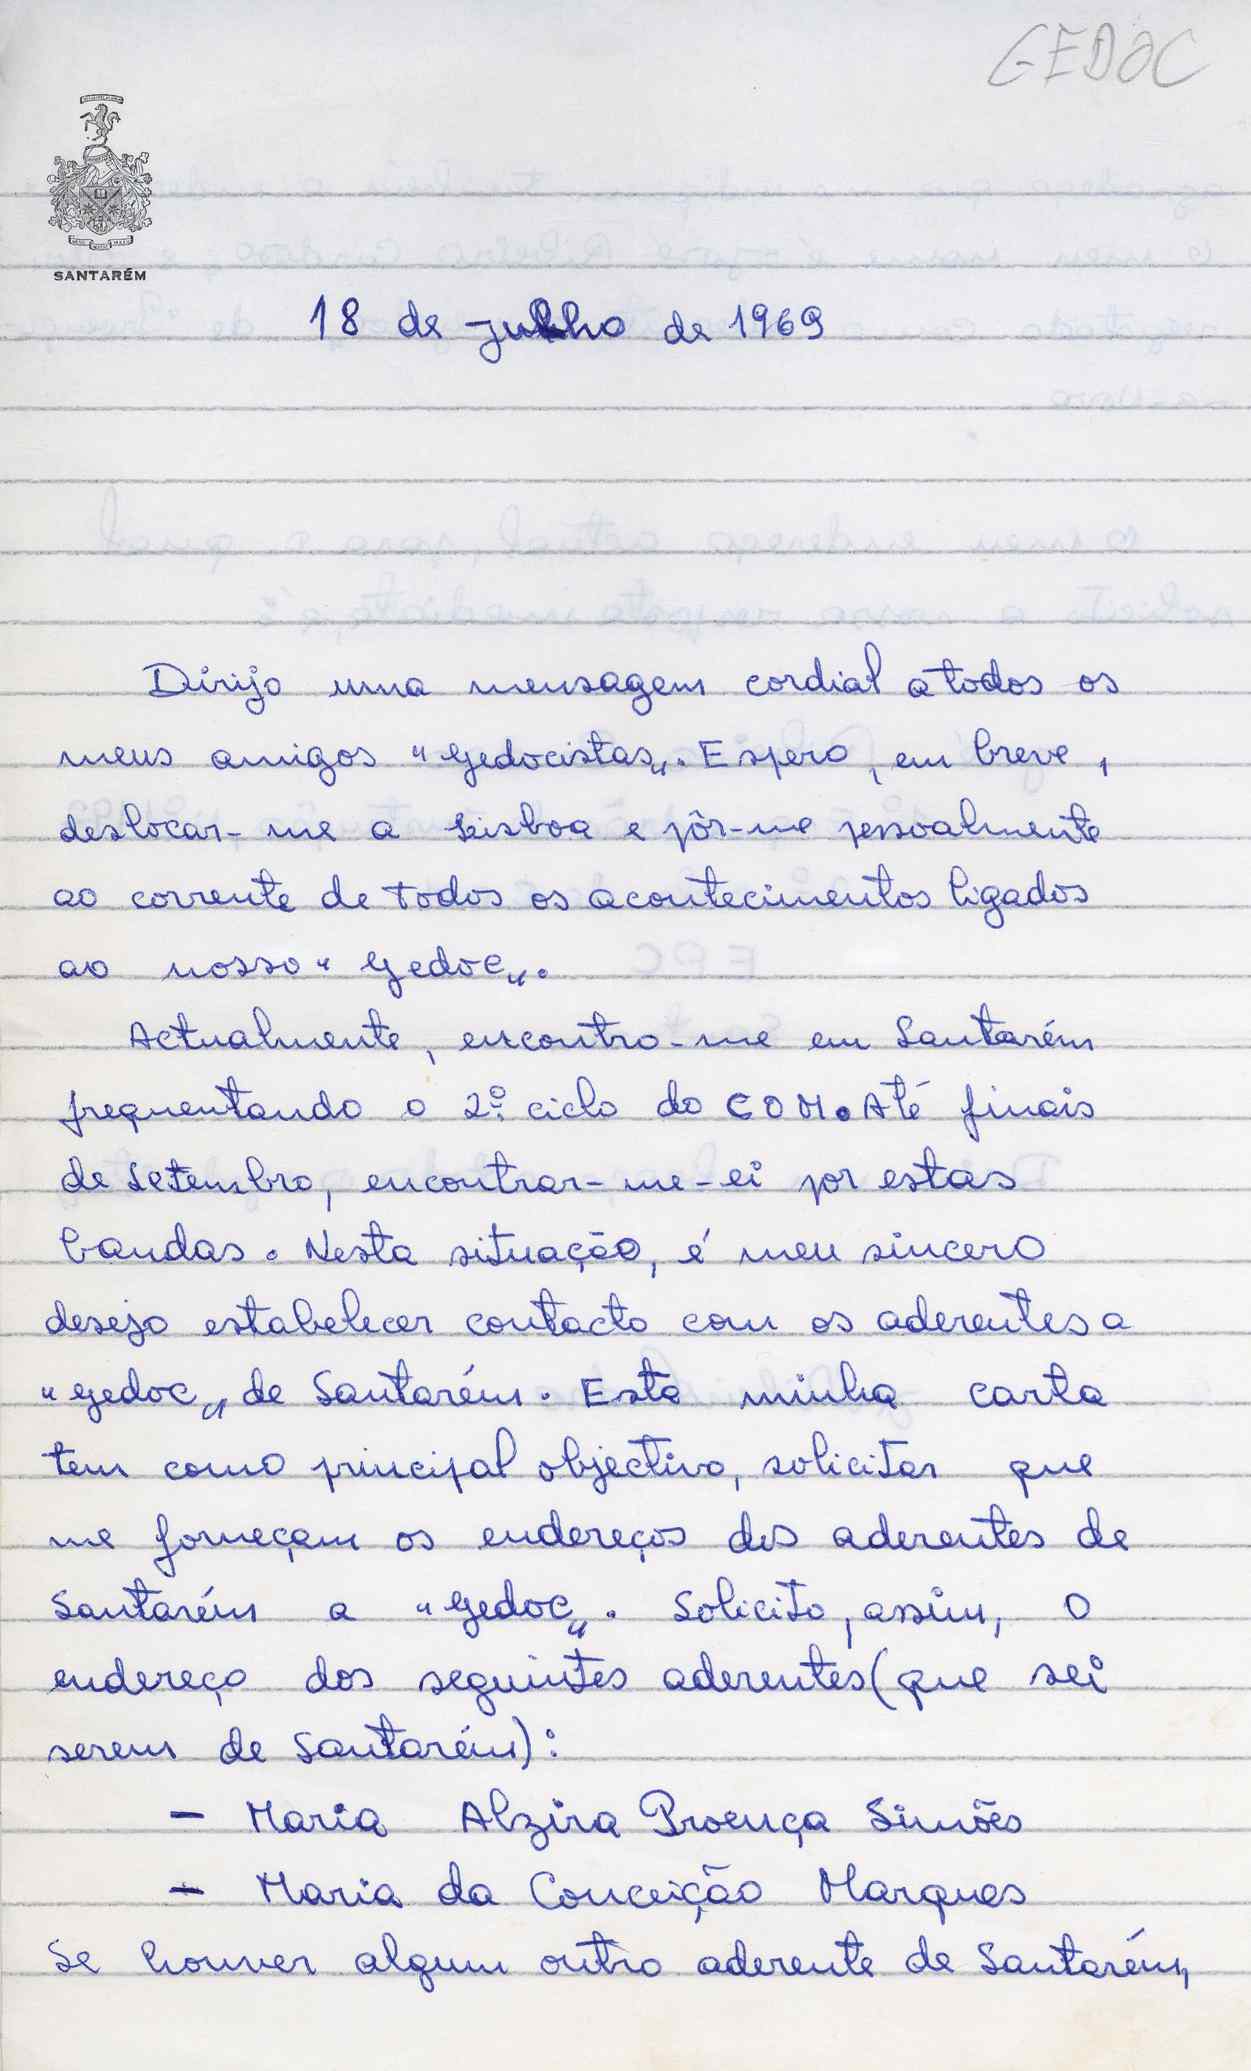 GEDOC
SANTARÉM
18 de julho de 1969
Dirijo uma mensagem cordial a todos os
meus amigos "gedocistas". Espero, em breve,
deslocar-me a Lisboa e pôr-me pessoalmente
ao corrente de todos os acontecimentos ligados
ao nosso "gedoc".
Actualmente, encontro-me em Santarém
frequentando o 2º. ciclo do COM. Até finais
de Setembro, encontrar-me-ei por estas
bandas. Nesta situação, é meu sincero
desejo estabelecer contacto com os aderentes a
"gedoc" de Santarém. Esta minha carta
tem como principal objectivo, solicitar que
me forneçam os endereços dos aderentes de
Santarém a "gedoc". Solicito, assim, o
endereço dos seguintes aderentes (que sei
serem de Santarém):
- Maria Alzira Proença Simões
- Maria da Conceição Marques
Se houver algum outro aderente de Santarém,